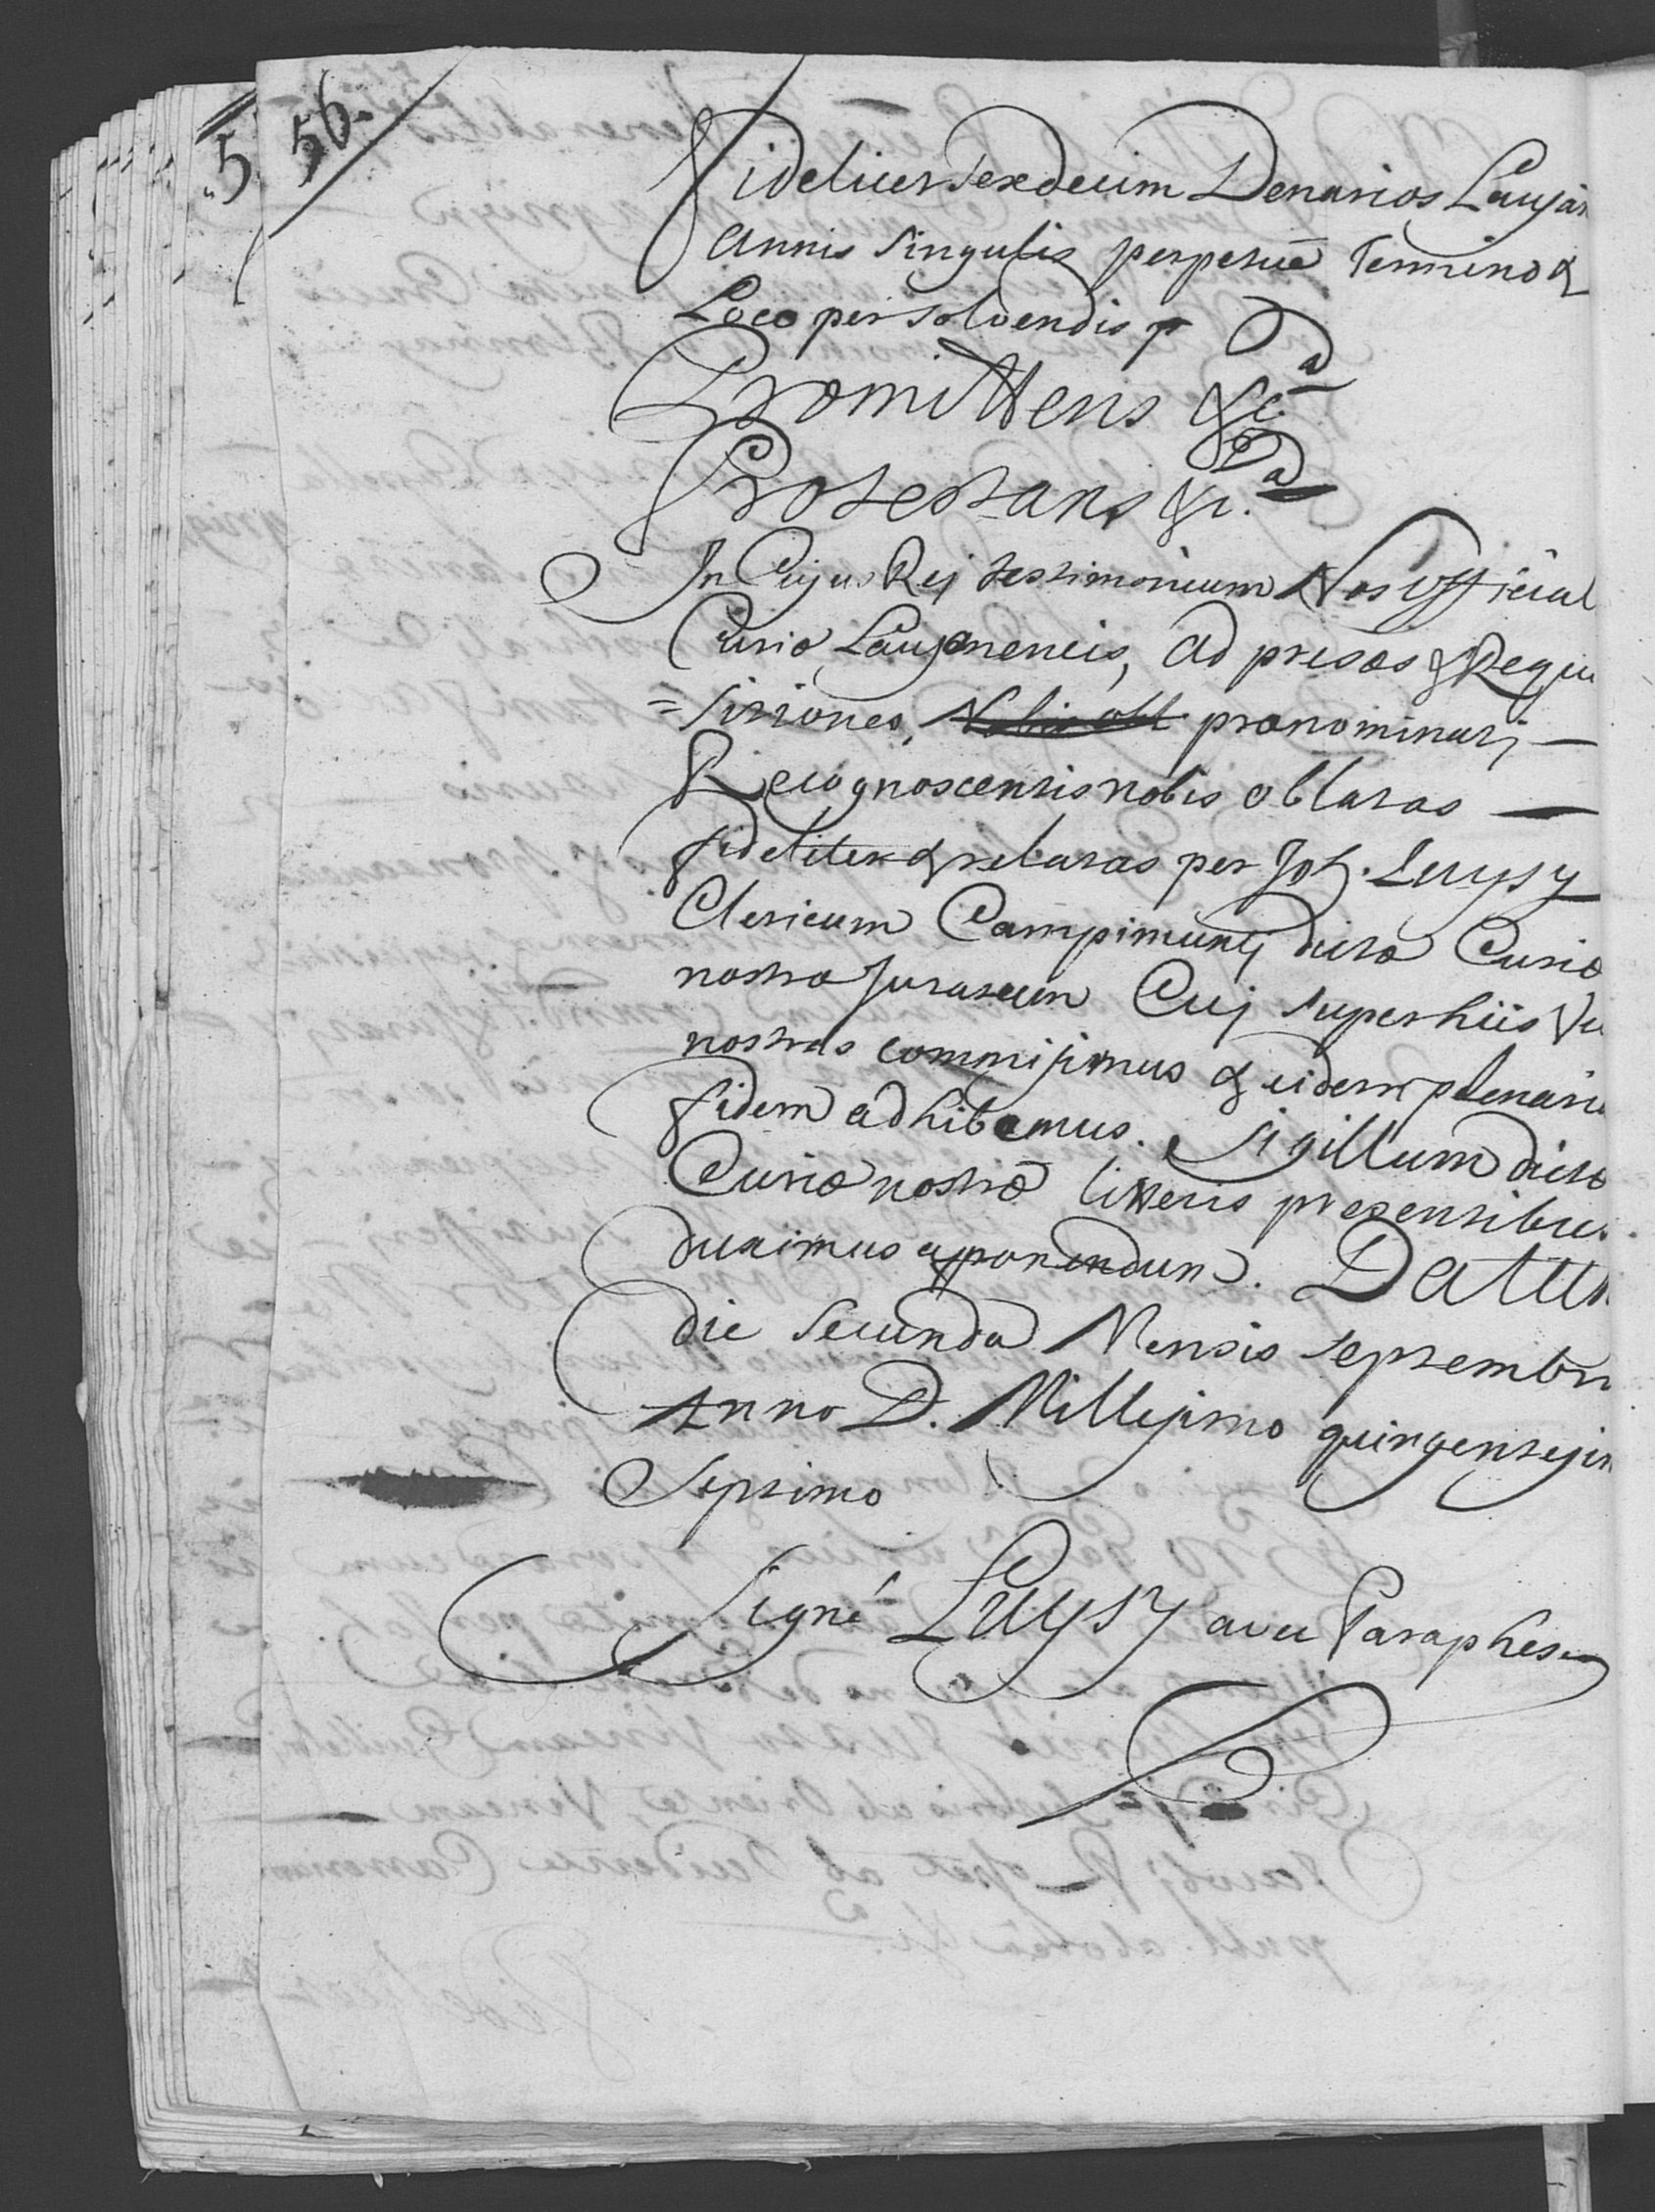 56.
Videlicet Sexdecim Denarios Lausan
Annis Singulis perpetue Termino &
Loco persolvendis p
Promittens &c.a
Protestans &c.a
In Cujus Rej testimonium Nos Official
Curiæ Lausanencis, ad preces & Requi
=sitiones, Nobis obl prænominatj
Recognoscentis nobis oblatas
fideliter & relatas per Joh. Luysy
Clericum Campimuntj dictæ Curiæ
nostræ Juratum Cuj super hiis Vi
nostras commisimus & eidem plenari
fidem adhibemus. Sigillum dictæ
Curiæ nostræ litteris presentibus
duximus apponendum. Datum
die Secunda Mensis Septembri
Anno D. Millesimo quingentesim
Septimo
Signé Luysy avec Paraphes